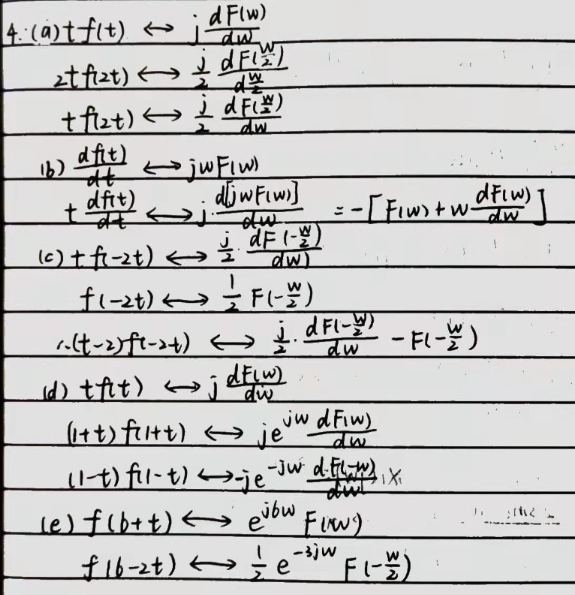 4.(a) t f(t) ↔ j dF(w)/dw
2t f(2t) ↔ j/2 dF(w/2)/d w/2
t f(2t) ↔ j/2 dF(w/2)/dw
(b) df(t)/dt ↔ jwF(w)
t df(t)/dt ↔ j· d[jwF(w)]/dw = -[F(w) + w dF(w)/dw]
(c) t f(-2t) ↔ j/2 · dF(-w/2)/dw
f(-2t) ↔ 1/2 F(-w/2)
∴(t-2)f(-2t) ↔ j/2 · dF(-w/2)/dw - F(-w/2)
(d) tf(t) ↔ j dF(w)/dw
(1+t) f(1+t) ↔ je^{jw} dF(w)/dw
(1-t) f(1-t) ↔ -je^{-jw} d F(-w)/dw
(e) f(6+t) ↔ e^{j6w} F(w)
f(6-2t) ↔ 1/2 e^{-3jw} F(-w/2)